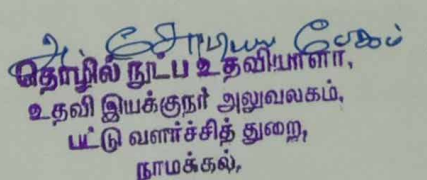 தொழில் நுட்ப உதவியாளர்,
உதவி இயக்குநர் அலுவலகம்,
பட்டு வளர்ச்சித் துறை,
நாமக்கல்,